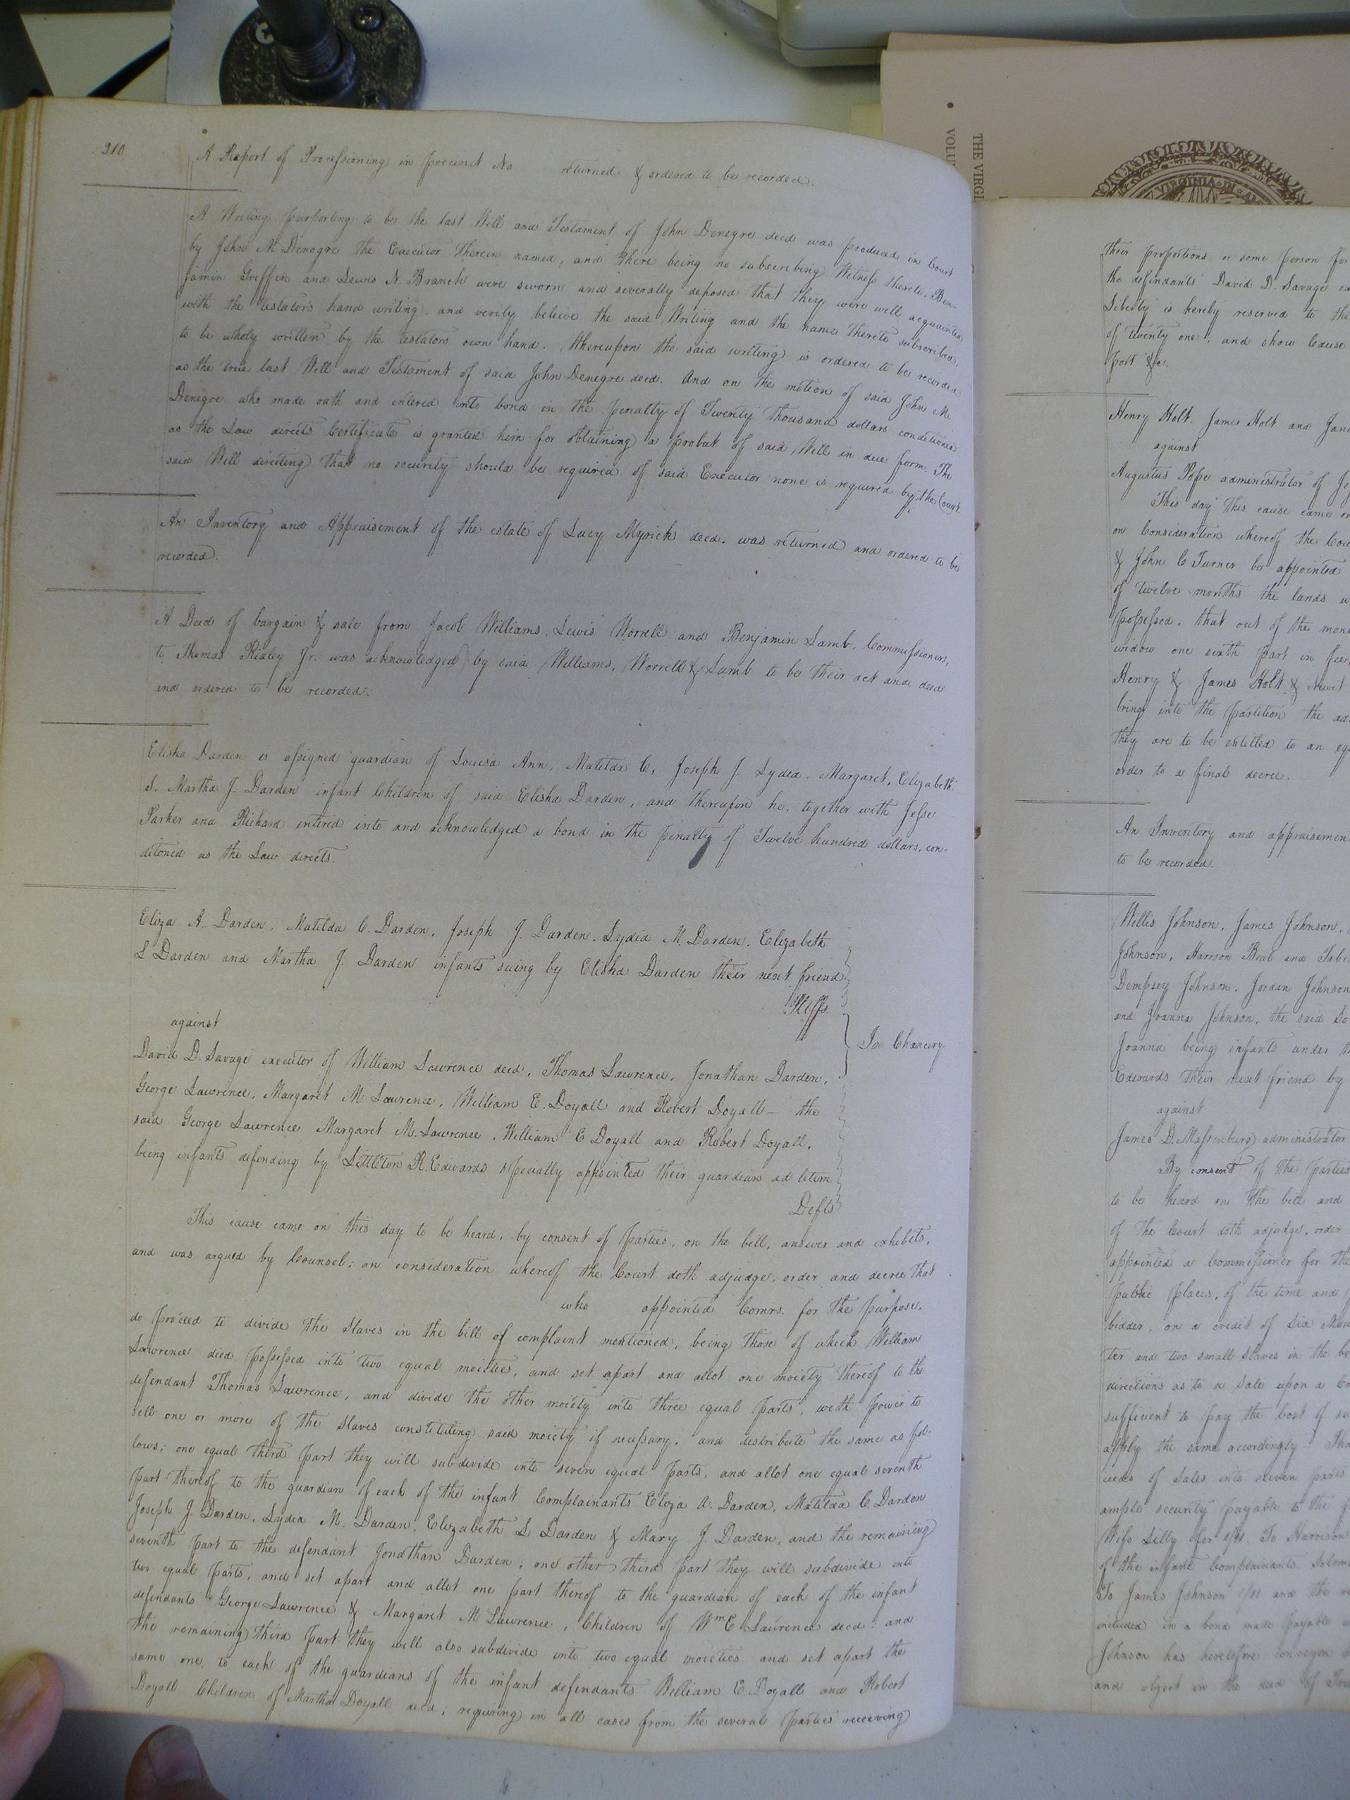 310
A Report of Processioning in precinct No returned & ordered to be recorded.
A Writing purporting to be the last Will and Testament of John Denegre decd was produced in Court
by John M. Denegre the Executor therein named, and there being no subscribing Witness thereto, Ben-
jamin Griffin and Lewis N. Branch were sworn and severally deposed that they were well acquainted
with the testators hand writing, and verily believe the said Writing and the name thereto subscribed,
to be wholy written by the testators own hand. Whereupon the said writing is ordered to be recorded
as the true last Will and Testament of said John Denegre decd. And on the motion of said John M.
Denegre who made oath and entered into bond in the penalty of Twenty thousand dollars conditioned
as the Law directs Certificate is granted him for obtaining a probat of said Will in due form. The
said Will directing that no security should be required of said Executor none is required by the Court.
An Inventory and Appraisement of the estate of Lucy Myrick decd. was returned and ordered to be
recorded.
A Deed of bargain & sale from Jacob Williams, Lewis Worrell and Benjamin Lamb, Commissioners,
to Thomas Ridley Jr. was acknowledged by said Williams, Worrell & Lamb to be their act and deed
and ordered to be recorded.
Elisha Darden is assigned guardian of Louisa Ann, Matilda C, Joseph J. Lydia, Margaret, Elizabeth
S. Martha J. Darden infant Children of said Elisha Darden, and thereupon he, together with Jesse
Parker and Richard entered into and acknowledged a bond in the penalty of Twelve hundred dollars, con-
ditoned as the Law directs.
Eliza A. Darden, Matilda C. Darden, Joseph J. Darden, Lydia M. Darden, Elizabeth
S Darden and Martha J. Darden infants suing by Elisha Darden their next friend
Pltffs
against
In Chancery
David D. Savage executor of William Lawrence decd, Thomas Lawrence, Jonathan Darden,
George Lawrence, Margaret M Lawrence, William E. Doyall and Robert Doyall – the
said George Lawrence Margaret M. Lawrence, William E Doyall and Robert Doyall,
being infants defending by Littleton R. Edwards specially appointed their guardian ad litem
Defts
This cause came on this day to be heard, by consent of parties, on the bill, answer and exhibits,
and was argued by Counsel; on consideration whereof the Court doth adjudge, order and decree that
who appointed Comrs. for the purpose,
do proceed to divide the slaves in the bill of complaint mentioned, being those of which William
Lawrence died possessed into two equal moieties, and set apart and allot one moiety thereof to the
defendant Thomas Lawrence, and divide the other moiety into three equal parts, with power to
sell one or more of the slaves constituting said moiety if necessary, and distribute the same as fol-
lows; one equal third part they will subdivide into seven equal parts, and allot one equal seventh
part thereof to the guardian of each of the infant Complainants Eliza A. Darden, Matilda C Darden
Joseph J. Darden, Lydia M. Darden, Elizabeth S Darden & Mary J. Darden, and the remaining
seventh part to the defendant Jonathan Darden; one other third part they will subdivide into
two equal parts, and set apart and allot one part thereof to the guardian of each of the infant
defendants George Lawrence & Margaret M Lawrence, Children of Wm E Lawrence decd: and
the remaining third part they will also subdivide into two equal moieties and set apart the
same one to each of the guardians of the infant defendants William E. Doyall and Robert
Doyall Children of Martha Doyall decd, requiring in all cases from the several parties receiving
THE VIRGI
VOLU
VIRGINIA IN A
their proportions or some person for
the defendants David D. Savage
Liberty is hereby reserved to the
of twenty one, and show Cause
port &c.
Henry Holt, James Holt and
against
Augustus Pope administrator of
This day this cause came on
on Consideration whereof the Cou
& John C Turner be appointed
of twelve months the lands
possessed, that out of the mon
widow one sixth part in
Henry & James Holt &
bring into the partition the
they are to be entitled to an eq
order to a final decree.
An Inventory and appraisemen
to be recorded.
Willis Johnson, James Johnson,
Johnson, Harrison Beal and
Dempsey Johnson, Jordan Johnson
and Joanna Johnson, the said
Joanna being infants under
Edwards their next friend by
against
James D. Massenburg administrator
By consent of the parties
to be heard on the bill and
of the Court doth adjudge, order
appointed a Commissioner for the
public places, of the time and
bidder, on a credit of six Mon
ter and two small slaves in the
directions as to a sale upon a
sufficient to pay the cost of
apply the same accordingly.
ceeds of sales into eleven parts
ample security payable to the
Wife Lilly for To Harrison
of the infant Complainants
To James Johnson and the
included in a bond made payable
Johnson has heretofore conveyed
and object in the deed of